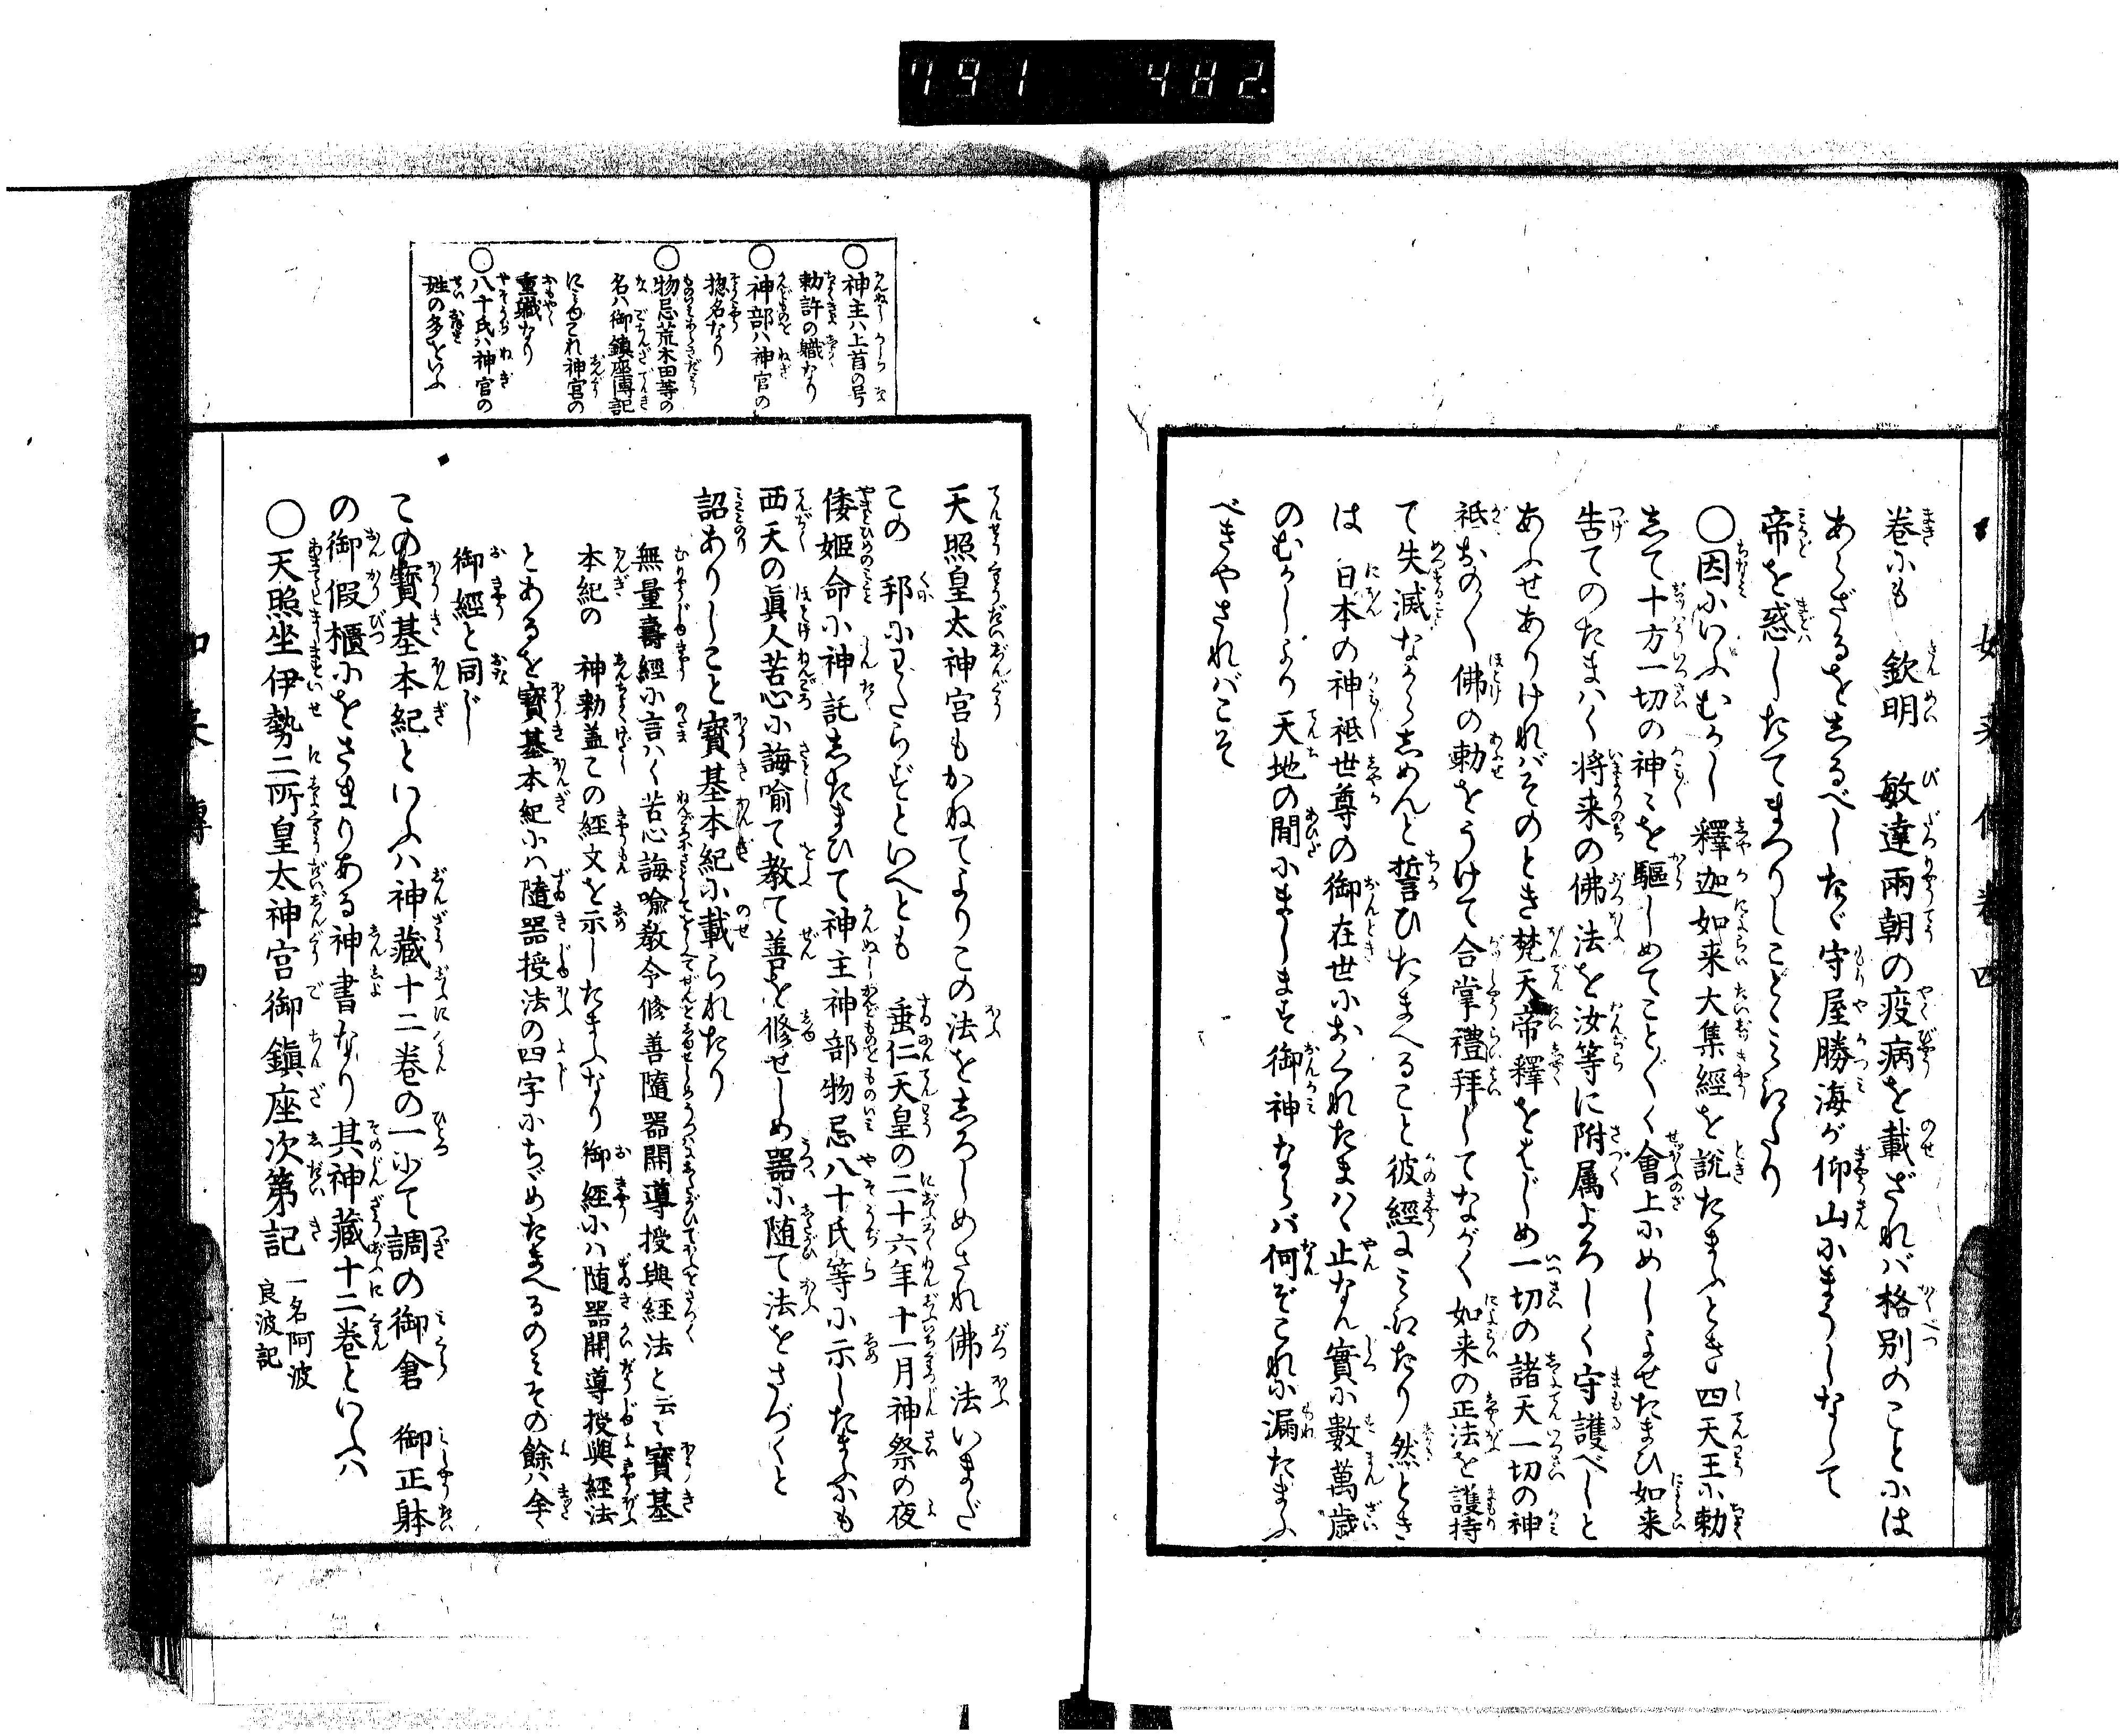 791 482
巻にも　欽明　敏達兩朝の疫病を載ざれバ格別のことには
あらざるをしるべしたゞ守屋勝海が仰山にまうしなして
帝を惑したてまつりしことゝみえたり
〇因にいふむかし　釋迦如来大集經を説たまふとき四天王に勅
して十方一切の神々を驅しめてこと〴〵く會上にめしよせたまひ如来
告てのたまハく将来の佛法を汝等に附属よろしく守護べしと
あふせありけれバそのとき梵天帝釋をはじめ一切の諸天一切の神
祇おの〳〵佛の勅をうけて合掌禮拜してながく如来の正法を護持
て失滅なからしめんと誓ひたまへること彼經にみえたり然とき
は　日本の神祇世尊の御在世におくれたまハゞ止なん實に數萬歳
のむかしより天地の間にまします御神ならバ何ぞこれに漏たまふ
べきやされバこそ
〇神主ハ上首の号
勅許の職なり
〇神部ハ神官の
惣名なり
〇物忌荒木田等の
名ハ御鎮座傳記
にみゆこれ神宮の
重職なり
〇八十氏ハ神官の
姓の多をいふ
天照皇太神宮もかねてよりこの法をしろしめされ佛法いまだ
この　邦にわたらずといへとも　垂仁天皇の二十六年十一月神祭の夜
倭姫命に神託したまひて神主神部物忌八十氏等に示したまふにも
西天の眞人苦心に誨喩て教て善を修せしめ器に随て法をさづくと
詔ありしこと寶基本紀に載られたり
無量壽經に言ハく苦心誨喩教令修善隨器開導授與經法と云々寶基
本紀の　神勅蓋この経文を示したまふなり　御經にハ随器開導授與經法
とあるを寶基本紀にハ隨器授法の四字にちゞめたまへるのみその餘ハ全く
御經と同じ
この寶基本紀といふハ神藏十二巻の一にて調の御倉　御正躰
の御假櫃にをさまりある神書なり其神藏十二巻といふハ
〇天照坐伊勢二所皇太神宮御鎭座次第記　一名阿波
良波記